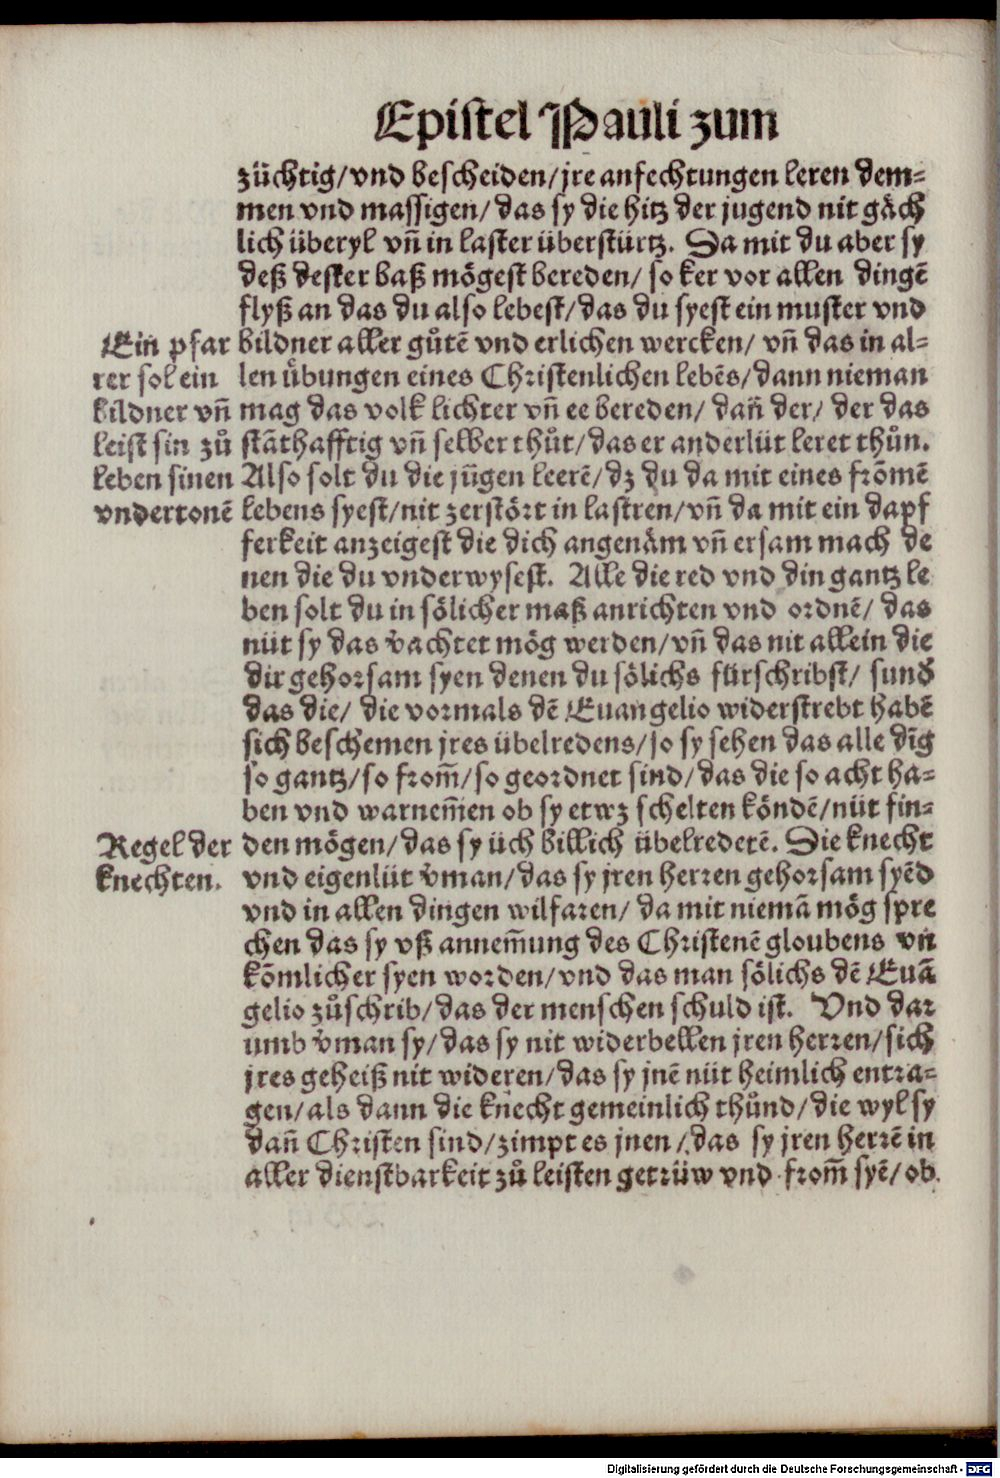 Epistel Pauli zum
züchtig/vnd bescheiden/jre anfechtungen leren dem=
men vnd massigen/das sy die hitz der jugend nit gäch
lich überyl vn̄ in laster überstürtz. Da mit du aber sy
deß dester baß mögest bereden/ so ker vor allen dingē
flyß an das du also lebest/das du syest ein muster vnd
bildner aller gůtē vnd erlichen wercken/ vn̄ das in al=
len übungen eines Christenlichen lebēs/dann nieman
mag das volk lichter vn̄ ee bereden/ dan̄ der/ der das
stāthafftig vn̄ selber thůt/das er anderlüt leret thůn.
Also solt du die jūgen leerē/dz du da mit eines frōmē
lebens syest/nit zerstört in lastren/vn̄ da mit ein dapf
ferkeit anzeigest die dich angenäm vn̄ ersam mach de
nen die du vnderwysest. Alle die red vnd din gantz le
ben solt du in sölicher maß anrichten vnd ordnē/ das
nüt sy das v̄achtet mög werden/vn̄ das nit allein die
dir gehorsam syen denen du sölichs fürschribst/ sund̄
das die/ die vormals dē Euangelio widerstrebt habē
sich beschemen jres übelredens/so sy sehen das alle dīg
so gantz/so from̄/so geordnet sind/das die so acht ha=
ben vnd warnem̄en ob sy etwz schelten köndē/nüt fin=
den mögen/das sy üch billich übelredetē. Die knecht
vnd eigenlüt v̄man/das sy jren herren gehorsam syēd
vnd in allen dingen wilfaren/ da mit niemā mög spre
chen das sy vß annem̄ung des Christenē gloubens vn
kōmlicher syen worden/vnd das man sölichs dē Euā
gelio zůschrib/das der menschen schuld ist. Vnd dar
umb v̄man sy/das sy nit widerbellen jren herren/sich
jres geheiß nit wideren/das sy jnē nüt heimlich entra=
gen/als dann die knecht gemeinlich thůnd/die wyl sy
dan̄ Christen sind/zimpt es jnen/das sy jren herrē in
aller dienstbarkeit zů leisten getrüw vnd from̄ syē/ob
Ein pfar
rer sol ein
bildner vn̄
leist sin zů
leben sinen
vndertonē
Regel der
knechten.
Digitalisierung gefördert durch die Deutsche Forschungsgemeinschaft - DFG